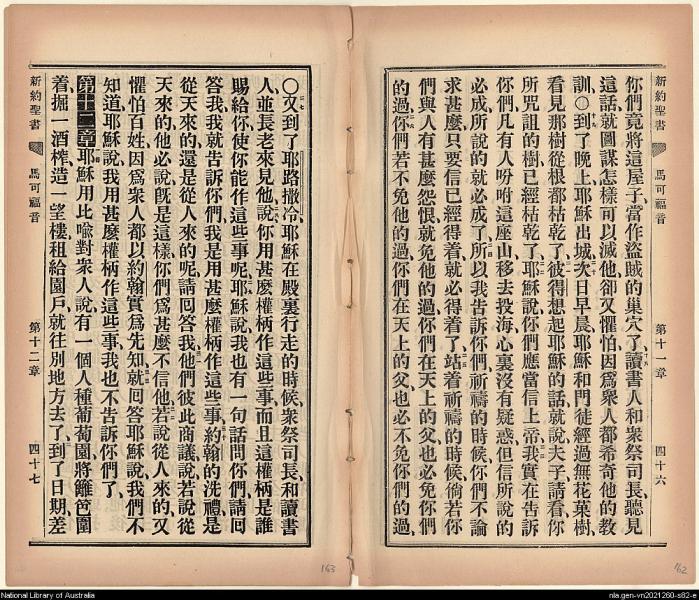 新約聖書
馬可福音
第十一章
四十六
你們竟將這屋子當作盜賊的巢穴了讀書人和衆祭司長聽見
這話就圖謀怎樣可以滅他卻又懼怕因爲衆人都希奇他的教
訓〇到了晚上耶穌出城次日早晨耶穌和門徒經過無花菓樹
看見那樹從根都枯乾了彼得想起耶穌的話就說夫子請看你
所咒詛的樹已經枯乾了耶穌說你們應當信上帝我實在告訴
你們凡有人吩咐這座山移去投海心裏沒有疑惑但信所說的
必成所說的就必成了所以我告訴你們祈禱的時候你們不論
求甚麼只要信已經得着就必得着了站着祈禱的時候倘若你
們與人有甚麼怨恨就免他的過你們在天上的父也必免你們
的過你們若不免他的過你們在天上的父也必不免你們的過
〇又到了耶路撒冷耶穌在殿裏行走的時候衆祭司長和讀書
人並長老來見他說你用甚麼權柄作這些事而且這權柄是誰
賜給你使你能作這些事呢耶穌說我也有一句話問你們請回
答我我就告訴你們我是用甚麼權柄作這些事約翰的洗禮是
從天來的還是從人來的呢請回答我他們彼此商議說若說從
天來的他必說旣是這樣你們爲甚麼不信他若說從人來的又
懼怕百姓因爲衆人都以約翰實爲先知就回答耶穌說我們不
知道耶穌說我用甚麼權柄作這些事我也不告訴你們了
第十二章耶穌用比喻對衆人說有一個人種葡萄園將籬笆圍
着掘一酒榨造一望樓租給園戶就往別地方去了到了日期差
新約聖書
馬可福音
第十二章
四十七
163
162
National Library of Australia
nla.gen-vn2021260-s82-e